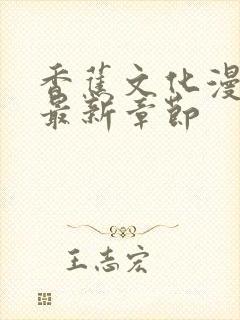 香蕉文化漫
最新章节
王志宏